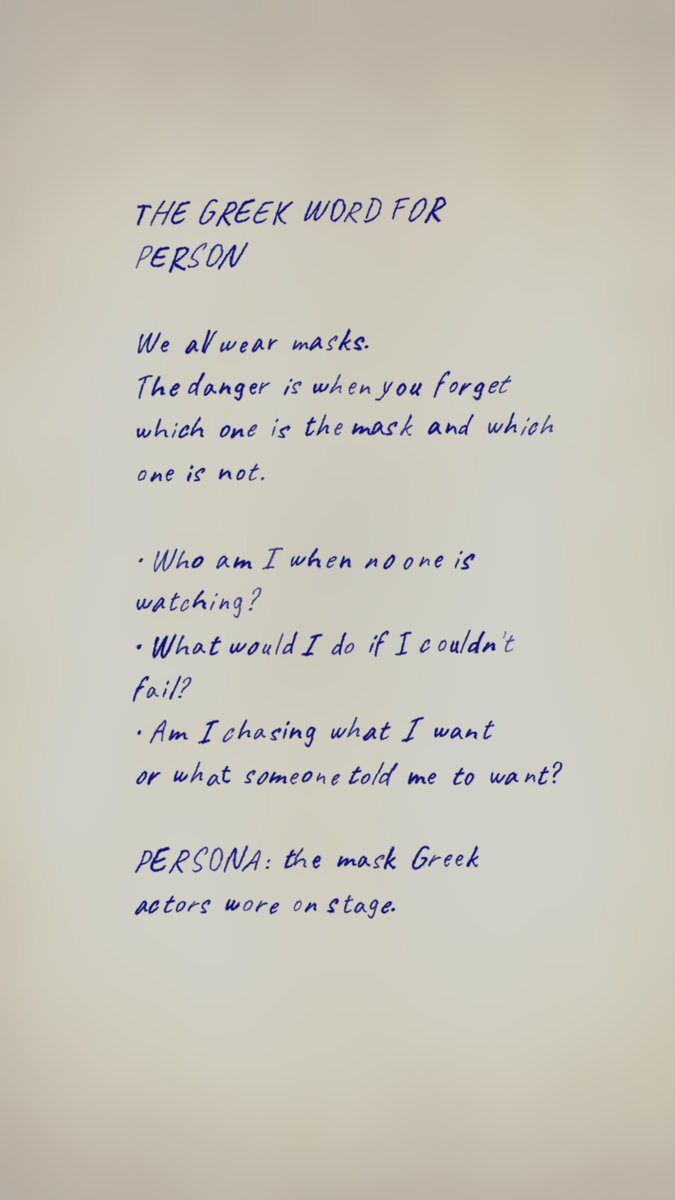 THE GREEK WORD FOR
PERSON
We all wear masks.
The danger is when you forget
which one is the mask and which
one is not.
· Who am I when no one is
watching?
· What would I do if I couldn't
fail?
· Am I chasing what I want
or what someone told me to want?
PERSONA: the mask Greek
actors wore on stage.